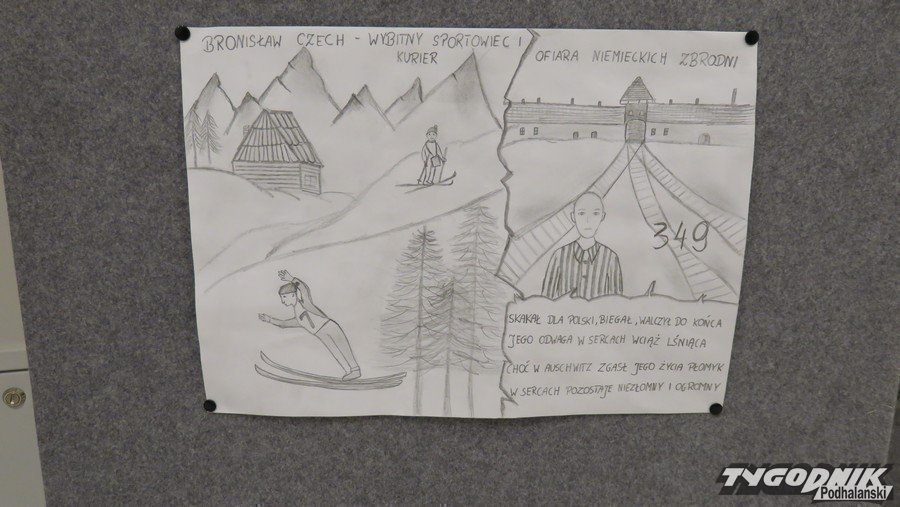 BRONISŁAW CZECH - WYBITNY SPORTOWIEC I
KURIER
OFIARA NIEMIECKICH ZBRODNI
349
SKAKAŁ DLA POLSKI, BIEGAŁ, WALCZYŁ DO KOŃCA
JEGO ODWAGA W SERCACH WCIĄŻ LŚNIĄCA
CHOĆ W AUSCHWITZ ZGASŁ JEGO ŻYCIA PŁOMYK
W SERCACH POZOSTAJE NIEZŁOMNY I OGROMNY
TYGODNIK
Podhalański